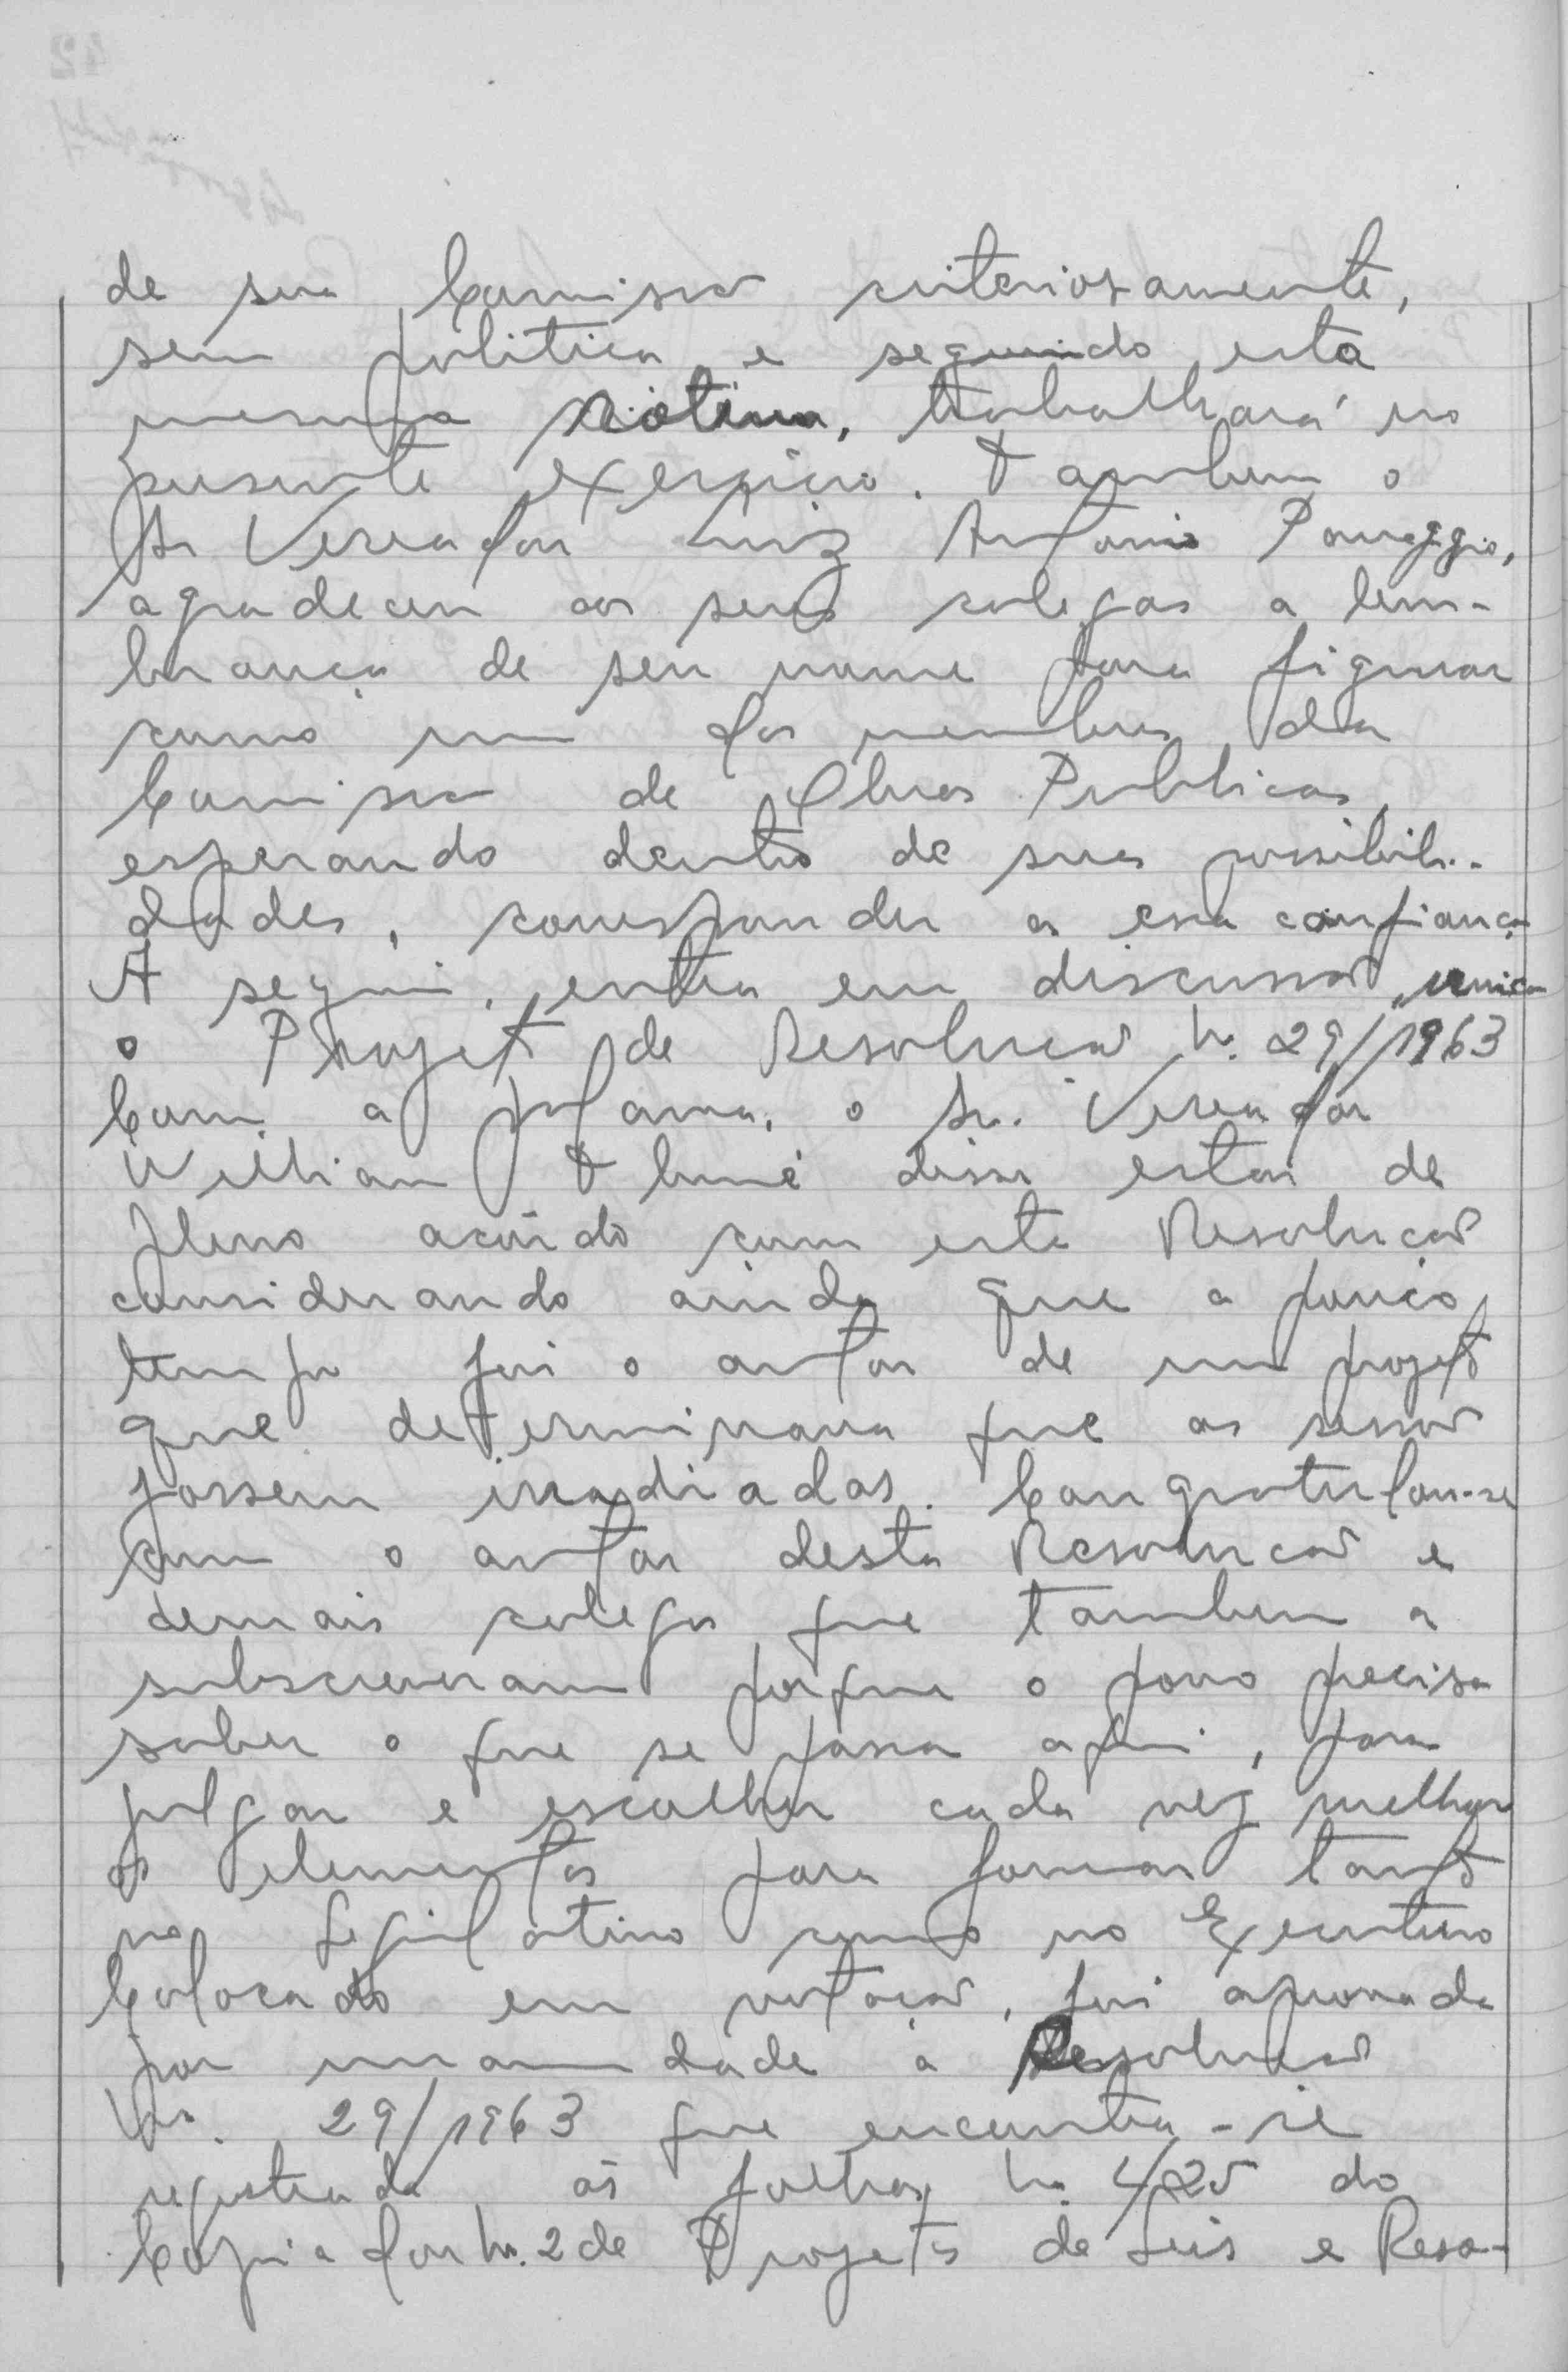 de sua Comissão criteriosamente,
sem politica e seguindo esta
mesma rotina, trabalhará no
presente exercicio. Tambem o
Sr Vereador Luiz Antonio Panaggio,
agradeceu aos seus colegas a lem-
brança de seu nome para figurar
como um dos membros da
Comissão de Obras Publicas,
esperando dentro de suas possibili-
dades, corresponder a essa confiança
A seguir, entra em discussão unica
o Projeto de Resolução n. 29/1963
Com a palavra, o Sr. Vereador
Willian disse estar de
pleno acôrdo com esta Resolução
considerando ainda que a pouco
tempo foi o autor de um projeto
que determinava que as sessão
fossem irradiadas. Congratulou-se
com o autor desta Resolução e
demais colegas que tambem a
subscreveram porque o povo precisa
saber o que se passa aqui, para
julgar e escolher cada vez melhor
os elementos para formar tanto
no Legislativo como no Executivo
Colocado em votação, foi aprovada
por unanimidade a Resolução
Nr. 29/1963 que encontra-se
registrada ás folhas n. 425 do
Copiador n. 2 de Projetos de Leis e Reso-